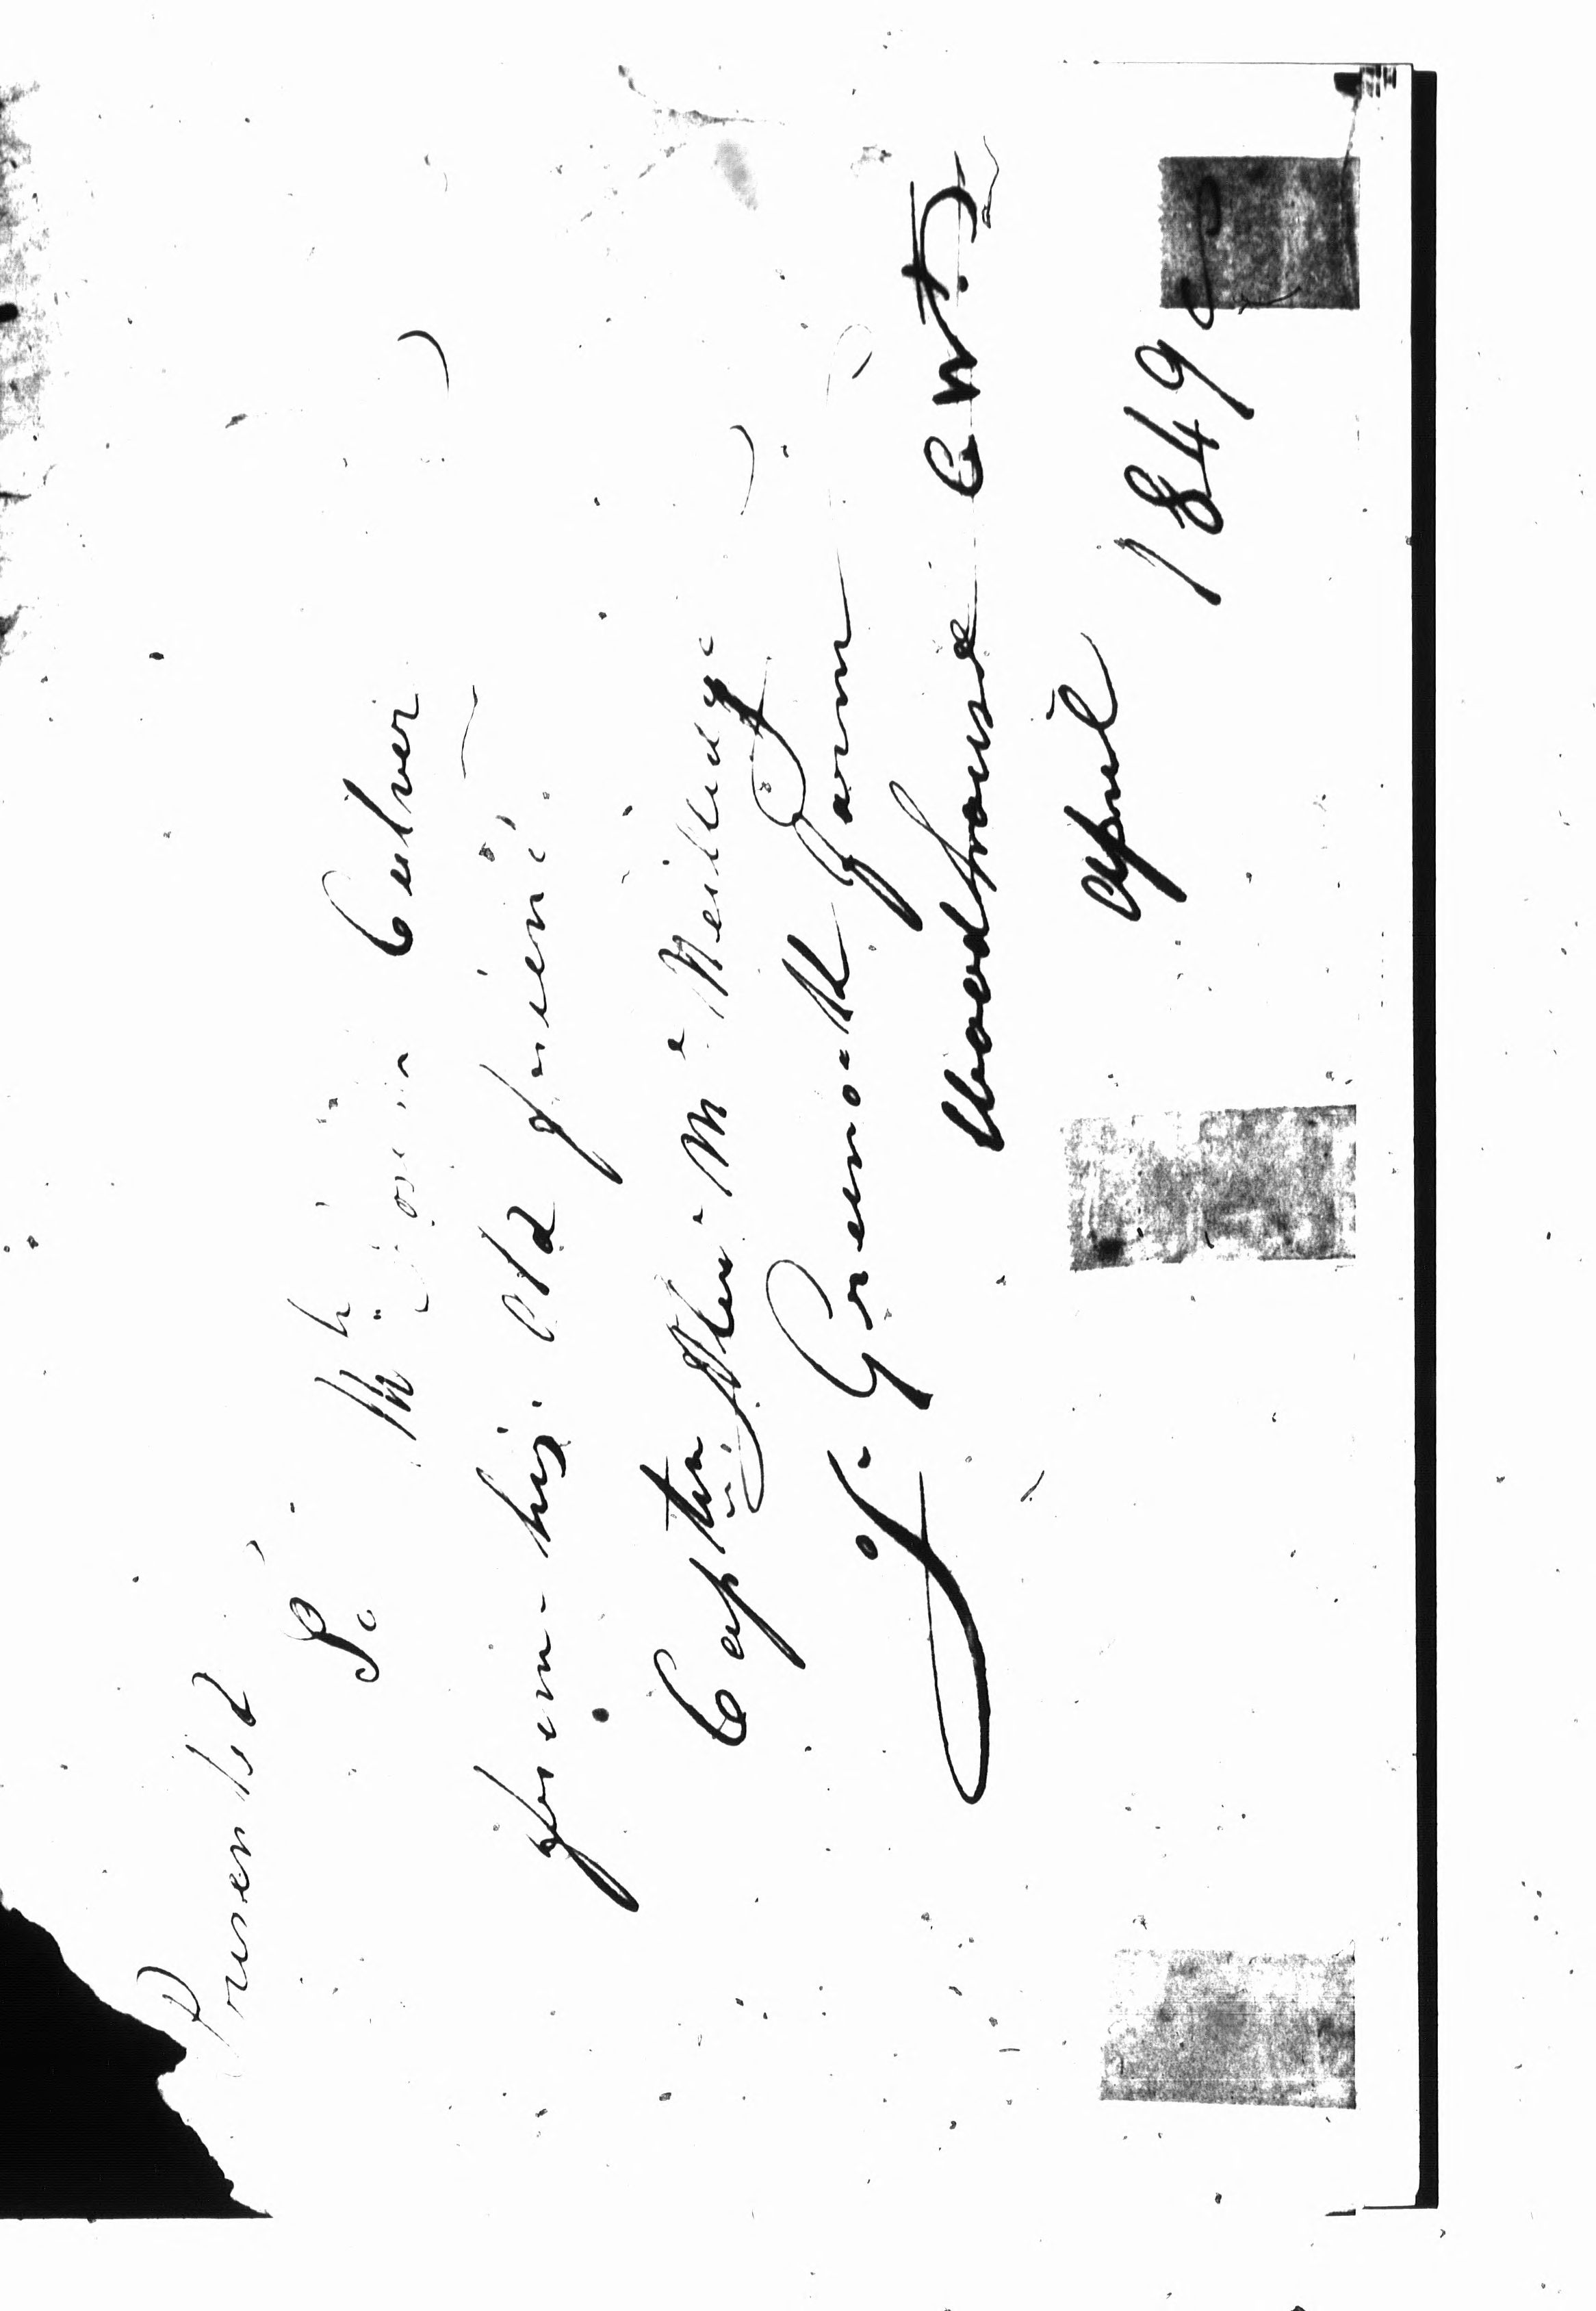 Presented
To Mr Culver
from his Old friend
Captin Alex. Mc Neilledge
of Greenock Farm
Woodhouse C W
April 1849